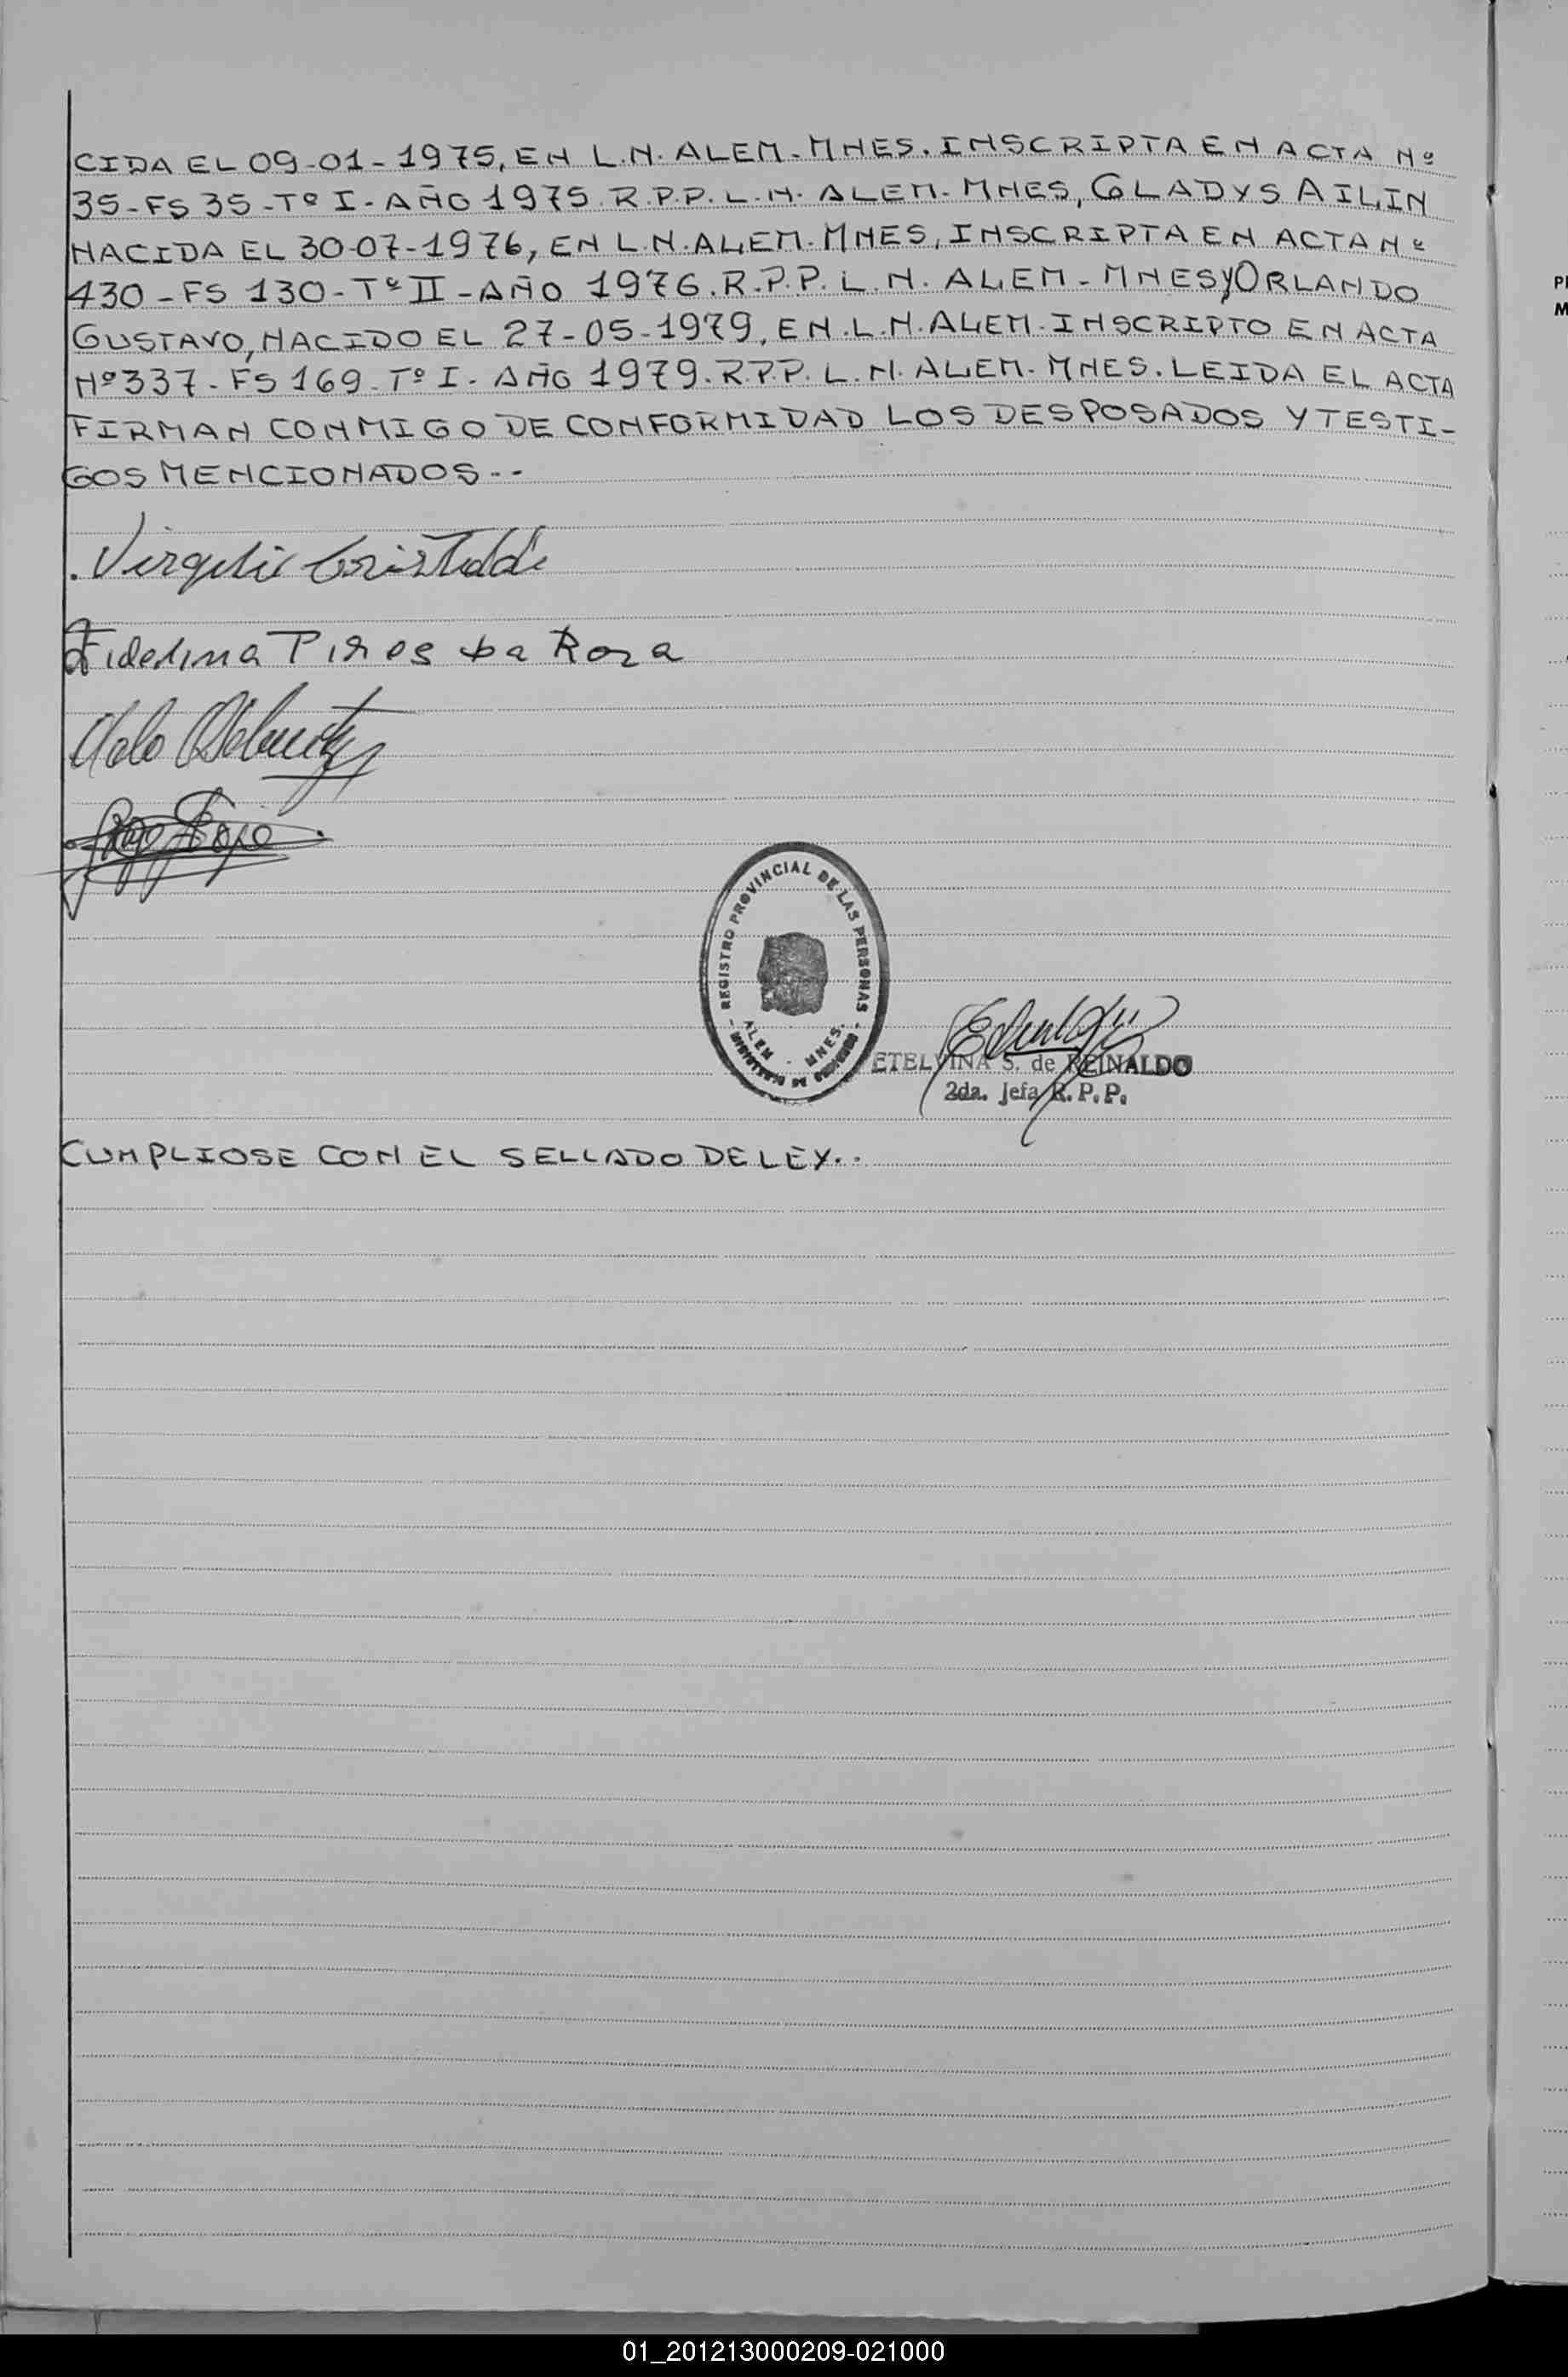 CIDA EL 09-01-1975, EN L.N. ALEM-MNES. INSCRIPTA EN ACTA Nº
35-FS 35-Tº I-AÑO 1975. R.P.P. L.N. ALEM-MNES, GLADYS AILIN
NACIDA EL 30-07-1976, EN L.N. ALEM-MNES, INSCRIPTA EN ACTA Nº
430-FS 130-Tº II-AÑO 1976. R.P.P. L.N. ALEM-MNES Y ORLANDO
GUSTAVO, NACIDO EL 27-05-1979, EN L.N. ALEM-INSCRIPTO EN ACTA
Nº 337-FS 169-Tº I-AÑO 1979. R.P.P. L.N. ALEM-MNES. LEIDA EL ACTA
FIRMAN CONMIGO DE CONFORMIDAD LOS DESPOSADOS Y TESTI-
GOS MENCIONADOS--
Fidelina Pires Da Roza
- REGISTRO PROVINCIAL DE LAS PERSONAS -
ALEM - MNES.
MINISTERIO DE GOBIERNO
ETELVINA S. de REINALDO
2da. Jefa R.P.P.
CUMPLIOSE CON EL SELLADO DE LEY..
01_201213000209-021000